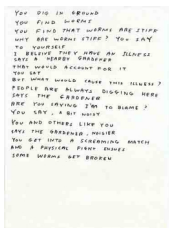 YOU DIG IN GROUND
YOU FIND WORMS
YOU FIND THAT WORMS ARE STIFF
WHY ARE WORMS STIFF? YOU SAY
TO YOURSELF
I BELIEVE THEY HAVE AN ILLNESS
SAYS A NEARBY GARDENER
THAT WOULD ACCOUNT FOR IT
YOU SAY
BUT WHAT WOULD CAUSE THIS ILLNESS?
PEOPLE ARE ALWAYS DIGGING HERE
SAYS THE GARDENER
ARE YOU SAYING I'M TO BLAME?
YOU SAY, A BIT NOISY
YOU AND OTHERS LIKE YOU
SAYS THE GARDENER, NOISIER
YOU GET INTO A SCREAMING MATCH
AND A PHYSICAL FIGHT ENSUES
SOME WORMS GET BROKEN